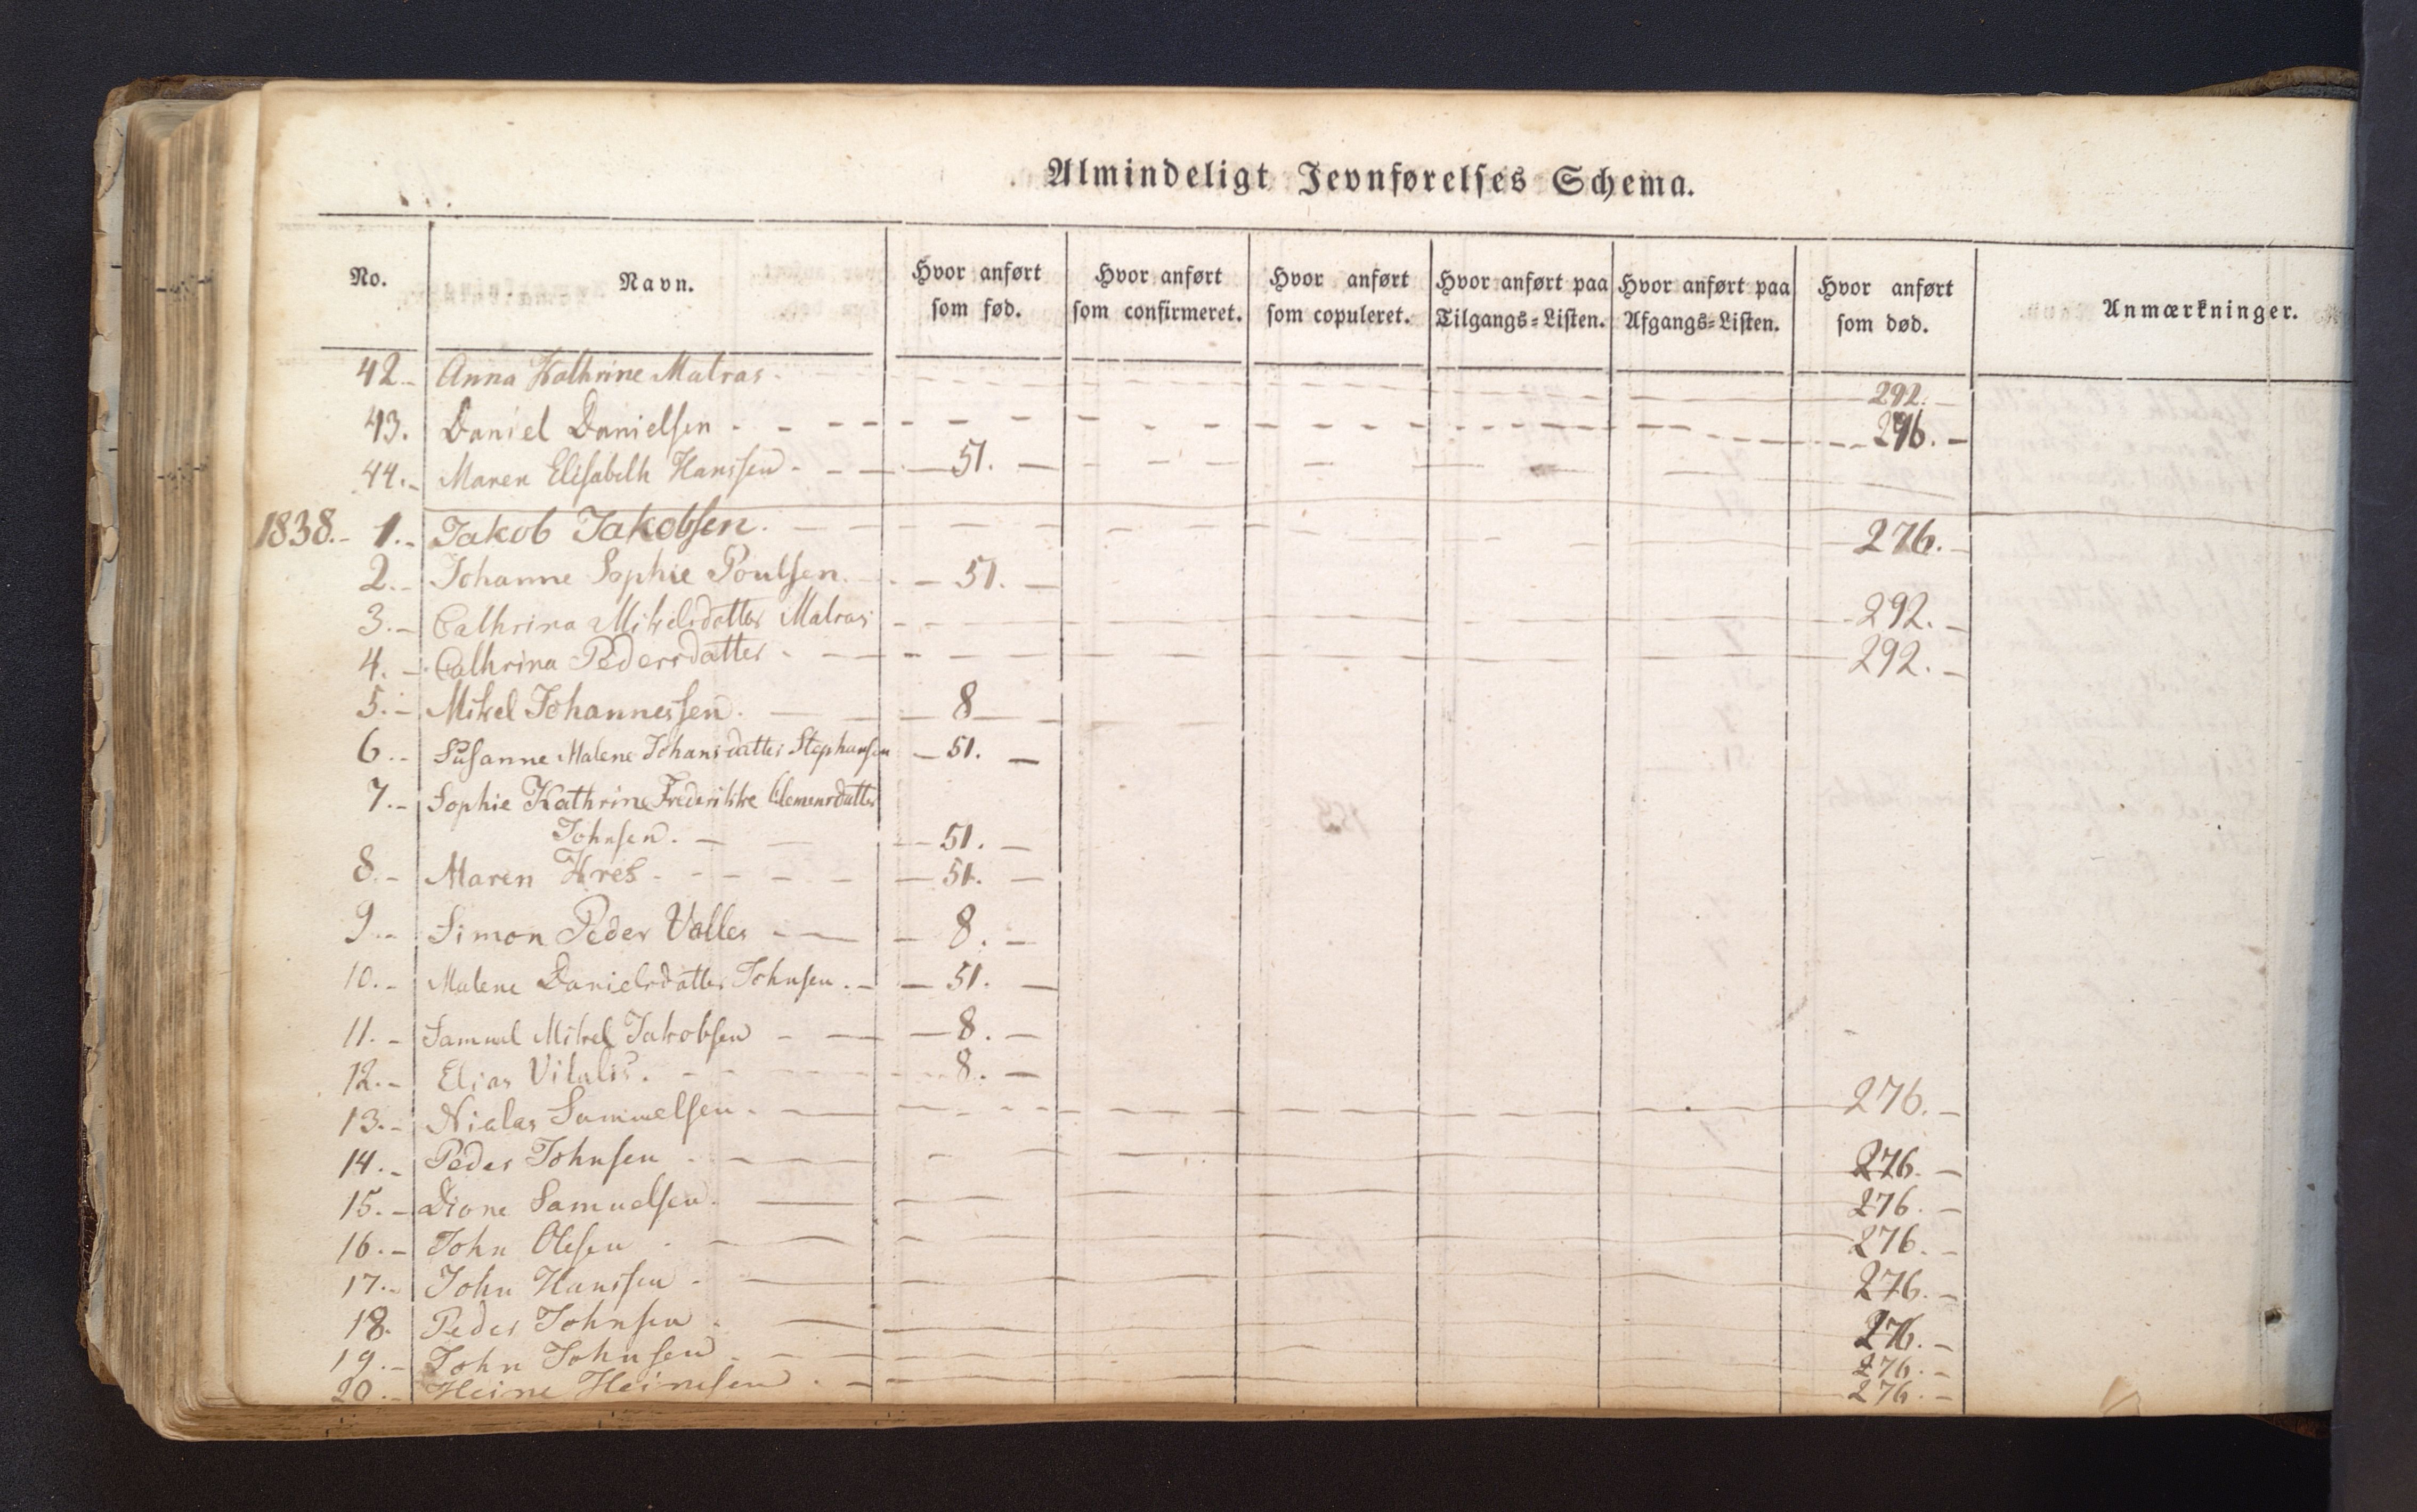 Almindeligt Jevnførelses Schema.
No. Navn. Hvor anført som fød. Hvor anført som confirmeret. Hvor anført som copuleret. Hvor anført paa Tilgangs-Listen. Hvor anført paa Afgangs-Listen. Hvor anført som død. Anmærkninger.
42.- Anna Kathrine Matras. 292.-
43. Daniel Danielsen - 276.-
44.- Maren Elisabeth Hanssen - 51. -
1838.- 1.- Jakob Jakobsen. 276.-
2.- Johanne Sophie Poulsen. - 51. -
3.- Cathrina Mikelsdatter Matras - 292.-
4.- Cathrina Pedersdatter - 292.-
5.- Mikel Johannessen. - 8 -
6.- Susanne Malene Johansdatter Stephansen - 51. -
7.- Sophie Kathrine Frederikke Clemensdatter
Johnsen. - 51. -
8.- Maren - 51. -
9.- Simon Peder Valles - 8. -
10.- Malene Danielsdatter Johnsen. - 51. -
11.- Samuel Mikel Jakobsen - 8. -
12.- Elias Vitalis. - 8. -
13.- Niclas Samuelsen. - 276.-
14.- Peder Johnsen - 276.-
15.- Dione Samuelsen. - 276.-
16.- John Olesen - 276.-
17.- John Hanssen - 276.-
18. Peder Johnsen - 276.-
19.- John Johnsen - 276.-
20.- Heine Heinesen - 276.-